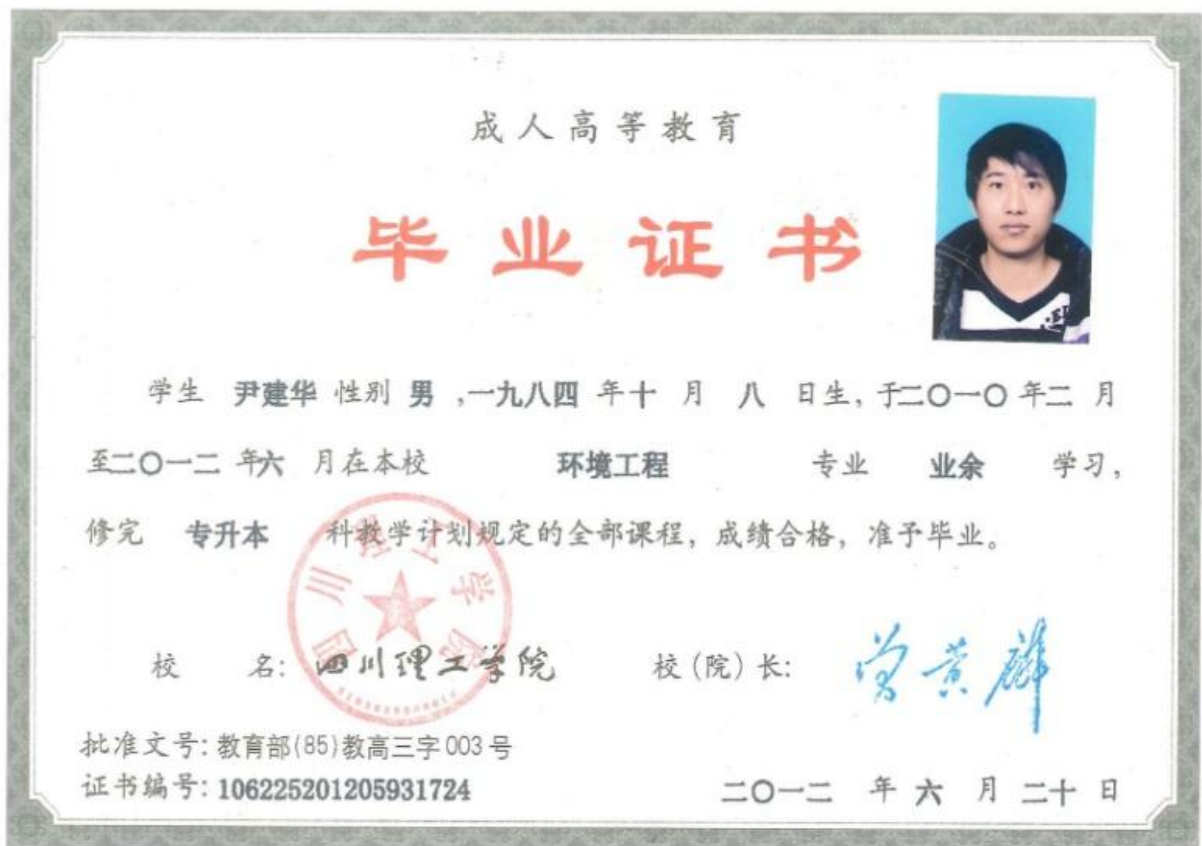 成人高等教育
毕业证书
学生 尹建华 性别 男 ,一九八四 年十 月 八 日生, 于二〇一〇 年二 月
至二〇一二 年六 月在本校 环境工程 专业 业余 学习,
修完 专升本 科教学计划规定的全部课程, 成绩合格, 准予毕业。
四川理工学院
校 名: 四川理工学院 校(院)长: 曾黄麟
批准文号: 教育部(85)教高三字003号
证书编号: 106225201205931724 二〇一二 年 六 月 二十 日